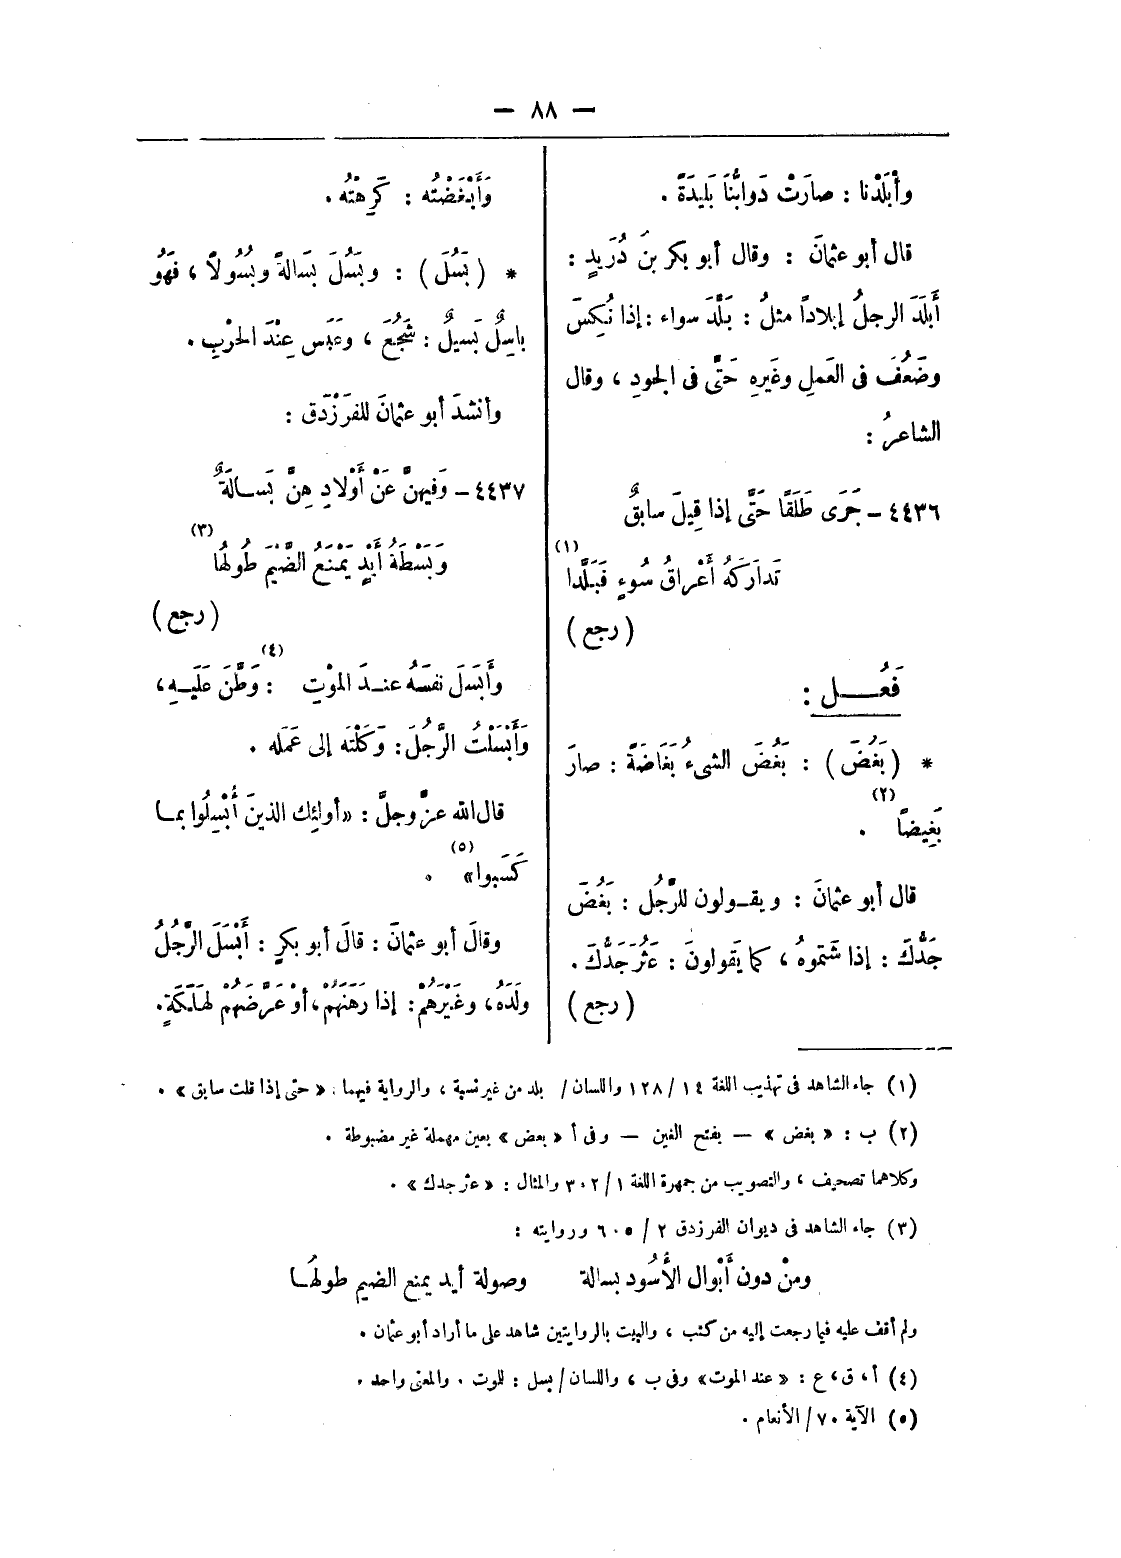 — ٨٨ —
وأَبْلَدْنا : صارَتْ دَوابُّنَا بَلِيدَةً .
قال أبو عثمانَ : وقال أبو بكر بنُ دُرَيدٍ :
أَبلَدَ الرجلُ إبلاداً مثلُ : بَلَّدَ سواء : إذا نُكِسَ
وضَعُفَ فى العَملِ وغَيرِهِ حَتَّى فى الجودِ ، وقال
الشاعرُ :
٤٤٣٦ – جَرَى طَلَقًا حَتَّى إذا قِيلَ سابقٌ
تَدارَكَهُ أَعْراقُ سُوءٍ فَبَلَّدا (١)
( رجع )
فَعُــل :
* ( بَغُضَ ) : بَغُضَ الشىءُ بَغَاضَةً : صارَ
بَغِيضًا (٢) .
قال أبو عثمانَ : ويقـولون للرَّجُل : بَغُضَ
جَدُّكَ : إذا شَتموهُ ، كما يَقولونَ : عَثُر جَدُّكَ .
( رجع )
وَأَبْغَضْتُه : كَرِهْتُه .
* ( بَسُلَ ) : وبَسُلَ بَسَالةً وبُسُولاً ، فهُو
باسِلٌ بَسيلٌ : شَجُعَ ، وعَبَس عِنْدَ الحَرْبِ .
وأنشدَ أبو عثمانَ للفَرَزْدَق :
٤٤٣٧ – وَفِيهنَّ عَنْ أَوْلادِهِنَّ بَسـالةٌ
وَبَسْطَةُ أَيْدٍ يَمْنَعُ الضَّيْمَ طُولُها (٣)
( رجع )
وأَبسَلَ نفسَهُ عنـدَ الموْتِ (٤) : وَطَّنَ عَلَيـهِ ،
وَأَبْسَلْتُ الرَّجُلَ : وَكَلْتَه إلى عَمَله .
قال الله عزَّ وجلَّ : «أولئِك الذينَ أُبْسِلُوا بمـا
كَسَبوا» (٥) .
وقالَ أبو عثمانَ : قالَ أبو بكرٍ : أَبْسَلَ الرَّجُلُ
ولَدَهُ ، وغَيْرَهُمْ : إذا رَهَنَهُمْ ، أوْ عَرَّضَهُمْ لهَلَكَةٍ .
(١) جاء الشاهد فى تهذيب اللغة ١٤ / ١٢٨ واللسان / بلد من غير نسبة ، والرواية فيهما : « حتى إذا قلت سابق » .
(٢) ب : « بغض » — بفتح الغين — وفى أ « بعض » بعين مهملة غير مضبوطة .
وكلاهما تصحيف ، والتصويب من جمهرة اللغة ١ / ٣٠٢ والمثال : « عثر جدك » .
(٣) جاء الشاهد فى ديوان الفرزدق ٢ / ٦٠٥ وروايته :
ومنْ دون أَبْوال الأُسُود بسالة وصولة أيد يمنع الضيم طولهُـا
ولم أقف عليه فيما رجعت إليه من كتب ، والبيت بالروايتين شاهد على ما أراد أبو عثمان .
(٤) أ ، ق ، ع : « عند الموت» وفى ب ، واللسان / بسل : للموت . والمعنى واحد .
(٥) الآية ٧٠ / الأنعام .